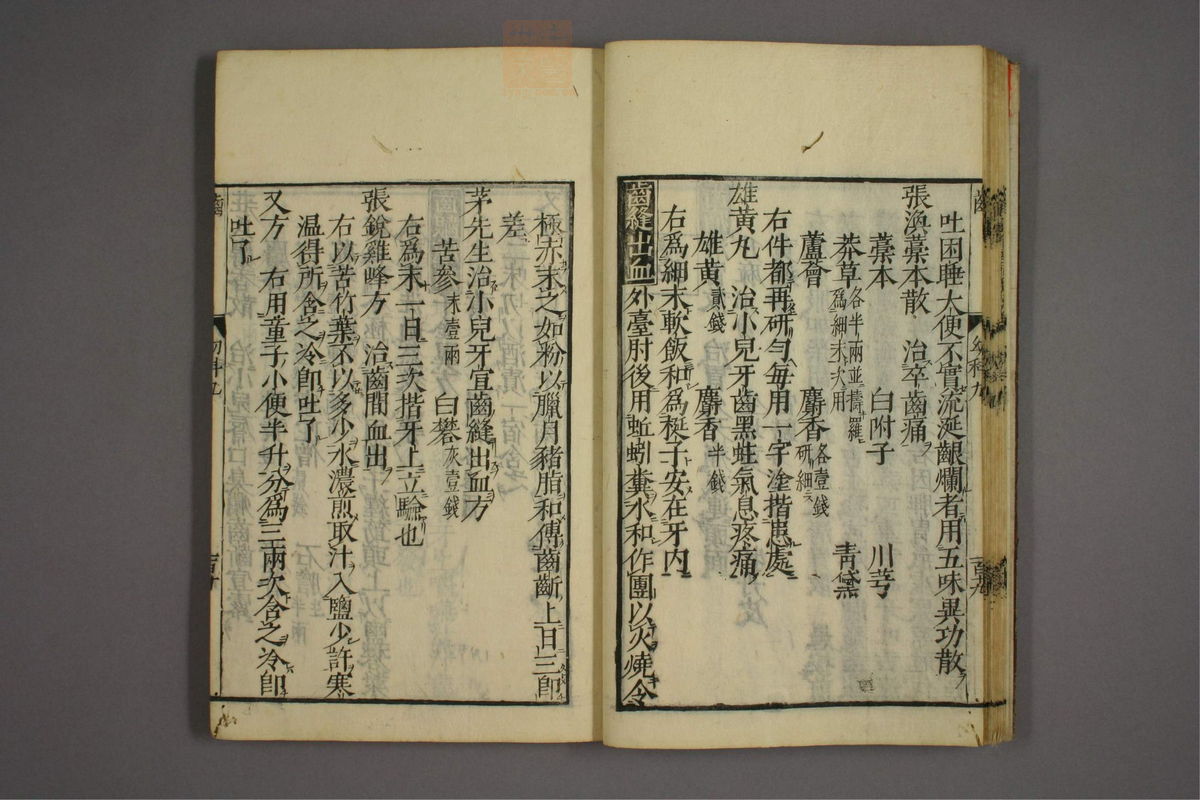 吐困睡大便不實流涎齦爛者用五味異功散
張渙藁本散 治卒齒痛
藁本 白附子 川芎
莽草 各半兩並擣羅爲細末次用 青黛
蘆薈 麝香 各壹錢研細
右件都再研勻每用一字塗揩患處
雄黃丸 治小兒牙齒黑蛀氣息疼痛
雄黃 貳錢 麝香 半錢
右爲細末軟飯和爲梃子安在牙內
齒縫出血 外臺肘後用蚯蚓糞水和作團以火燒令
極赤末之如粉以臘月豬脂和傅齒齗上日三卽
差
茅先生治小兒牙宣齒縫出血方
苦參 末壹兩 白礬 灰壹錢
右爲末一日三次揩牙上立驗也
張銳雞峰方 治齒間血出
右以苦竹葉不以多少水濃煎取汁入鹽少許寒
溫得所含之冷卽吐了
又方 右用童子小便半升分爲三兩次含之冷卽
吐了